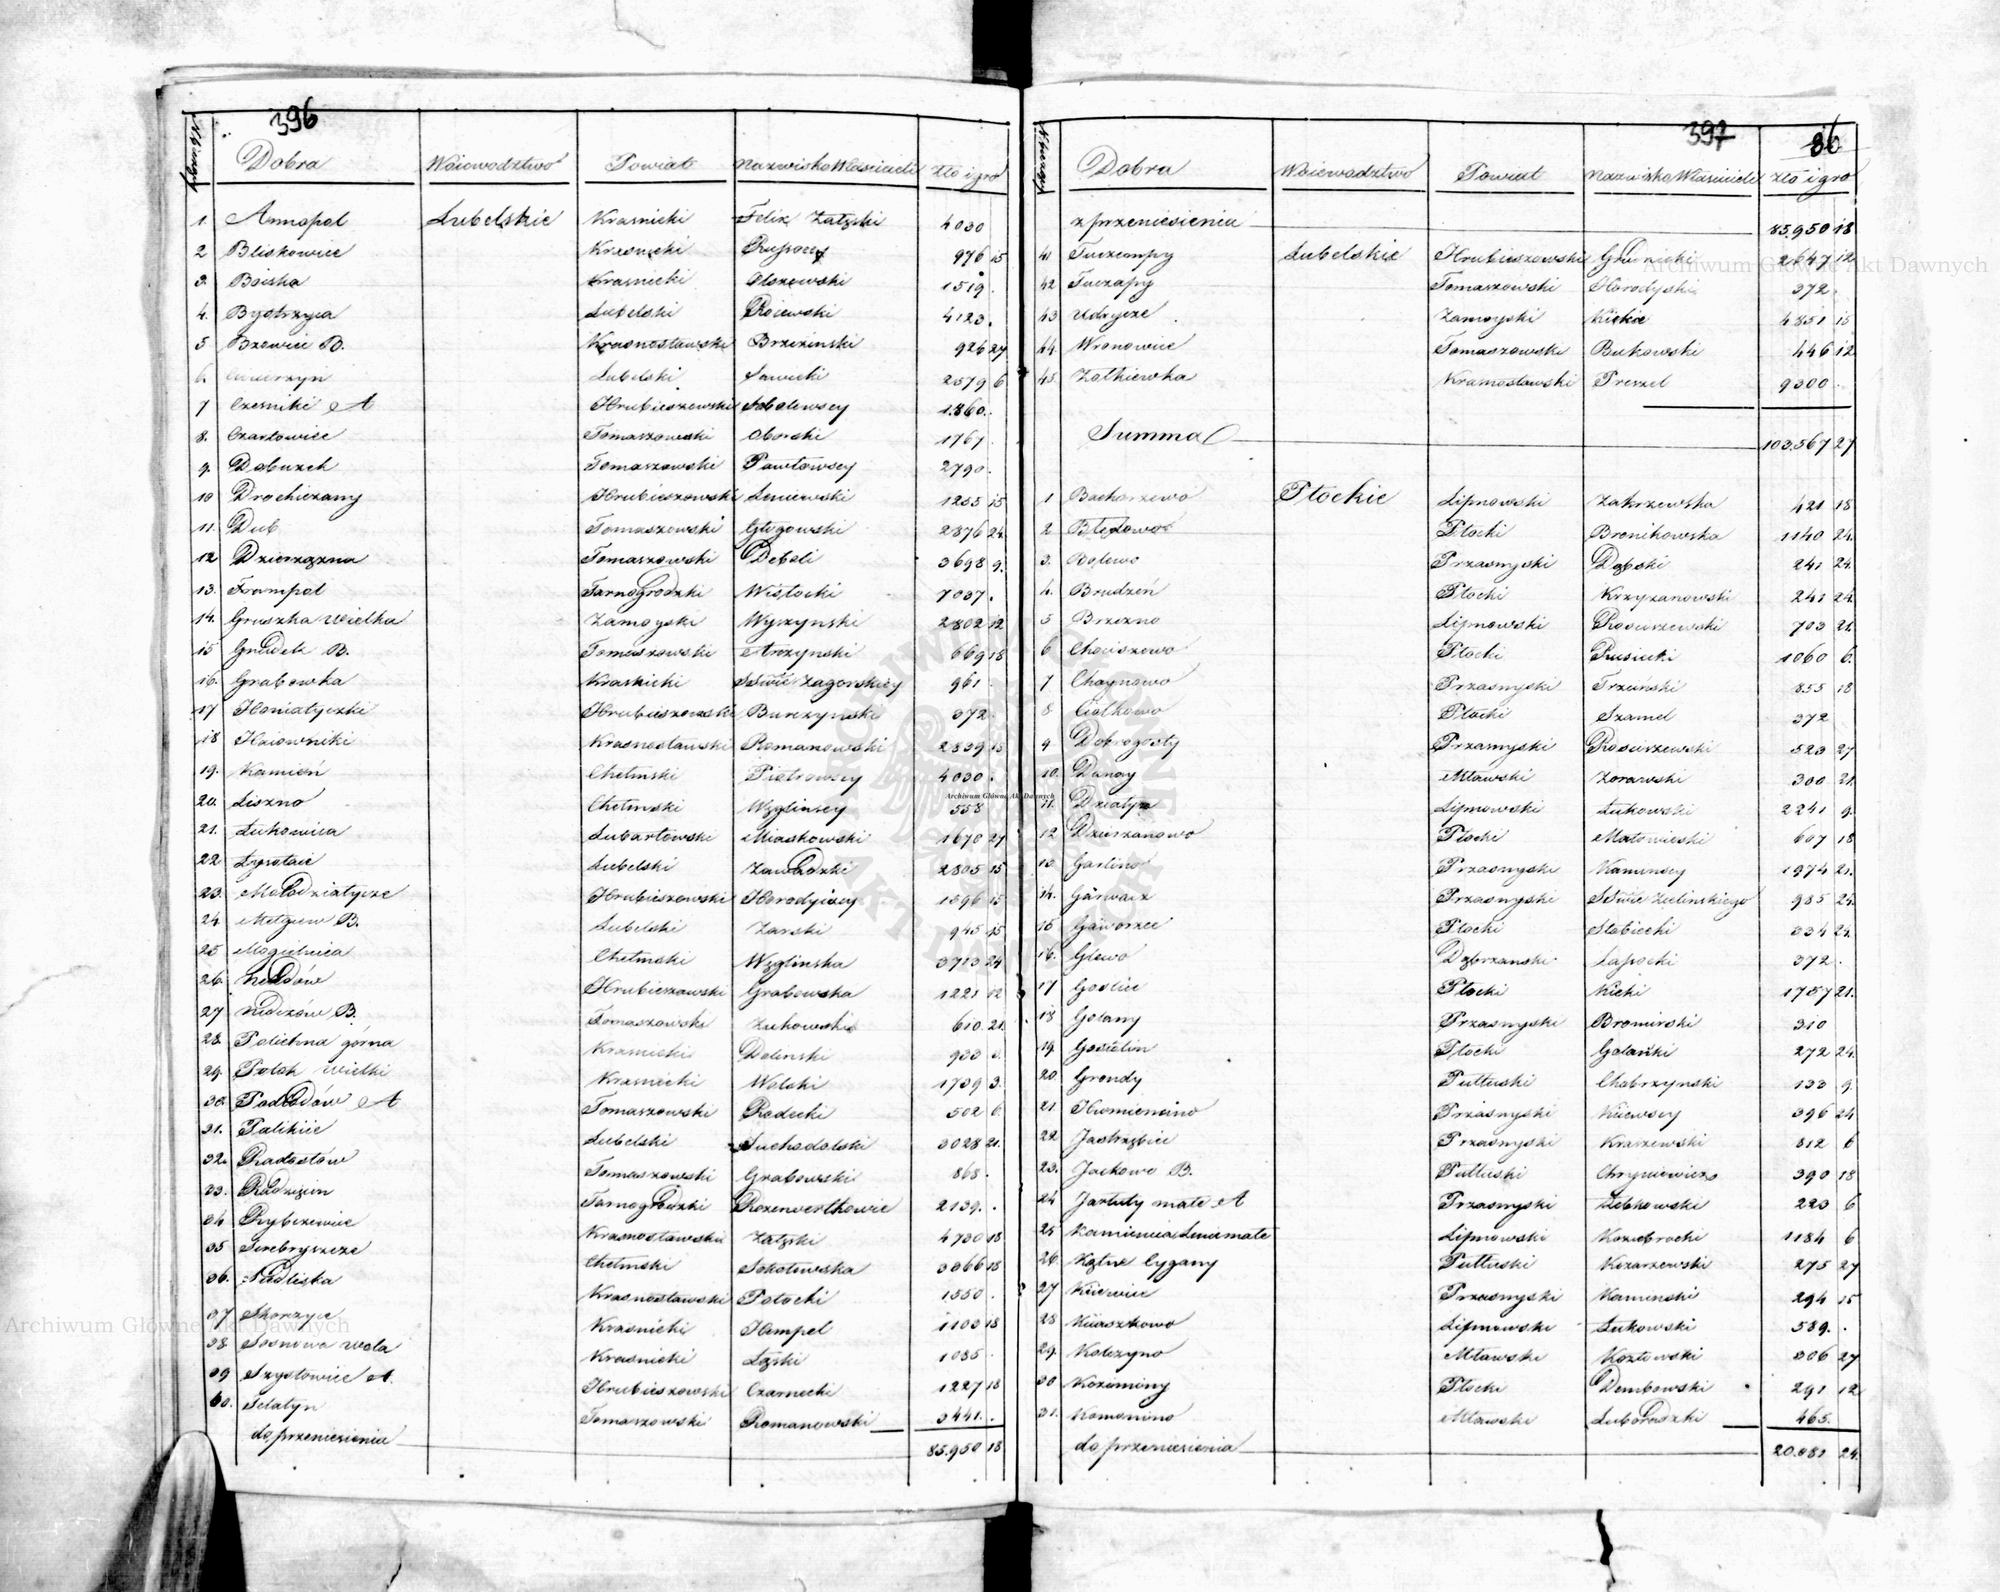 396
N bieżący Dobra Woiewodztwo Powiat Nazwisko Właściciela złt i gro
1. Annopol Lubelskie Krasnicki Felix Załęski 4030
2 Bliskowice Krasnicki 976 15
3. Boiska Krasnicki Olszewski 1519.
4. Bystrzyca Lubelski Roiewski 4123.
5 Bzowiec B. Krasnostawski Brzezinski 926 27
6. Lubelski Sawicki 2579 6
7 Czerniki A Hrubieszewski Sobolewscy 1.860.
8. Czartowiec Tomaszowski Oborski 1767.
9. Dobuzek Tomaszowski Pawłowscy 2790.
10 Drochiczany Hrubieszowski Leniewski 1255 15
11. Dub Tomaszowski Głogowski 2876 24
12 Dzierzązna Tomaszowski Deboli 3698 9.
13. Frampol Tarnogrodzki Wisłocki 7037.
14. Gruszka wielka Zamoyski Wyszynski 2802 12
15 Gródek B. Tomaszowski 669 18
16. Grabowka Krasnicki SSwie Zagorskiey 961.
17 Honiatyczki Hrubieszowski Burczynski 372.
18 Krasnostawski Romanowski 2839 15
19. Kamień Chełmski Piotrowscy 4030.
20. Liszno Chełmski Węglinscy 558
21. Łukowica Lubartowski Miaskowski 1670 27
22 Łysołaie Lubelski Zawadzki 2805 15
23. Mołodziatycze Hrubieszewski Horodyiscy 1396 15
24 Mełgiew B. Lubelski Zarski 945 15
25 Mogielnica Chełmski Węglinska 3713 24
26. Neledów Hrubieszowski Grabowska 1221 12
27 B. Tomaszowski Zukowski 610. 21.
28. Polichna górna Krasnicki Dolinski 933 3.
29. Potok wielki Krasnicki Wolski 1739 3.
30. Podlodów A Tomaszowski Radecki 502 6.
31. Palikiie Lubelski Suchodolski 3028 21.
32. Radostów Tomaszowski Grabowski 868.
33. Radzięcin Tarnogrodzki Rozenwerthowie 2139..
34 Rybczewice Krasnostawski Załęski 4730 18
35 Serebryszcze Chełmski Sokołowska 3066 18
36. Siedliska Krasnostawski Potocki 1550.
37 Skorzyce Krasnicki Hempel 1103 18
38 Sosnowa wola Krasnicki Łęski 1085.
39 Szystowice A. Hrubieszowski Czarnecki 1227 18
40. Sielatyn Tomaszowski Romanowski 3441.
do przeniesienia 85.950 18
397 86
N bieżący Dobra Woiewodztwo Powiat Nazwisko Właściciela złt i gro
z przeniesienia 85.950 18
41 Tuczempy Lubelskie Hrubieszowski Grudnicki 2647 12
42 Tuczapy Tomaszowski Horodyski 372.
43 Udrycze Zamoyski Kickie 4851 15
44. Wronowice Tomaszowski Bukowski 446 12
45. Zołkiewka Krasnostawski Preszel 9300.
Summa 103.567 27
1 Bocharzewo Płockie Lipnowski Zakrzewska 421 18
2 Błędowo Płocki Bronikowska 1140 24.
3. Bolewo Przasnyski Dąbski 241 24.
4. Brudzeń Płocki Krzyzanowski 241 24.
5 Brzozno Lipnowski Rosciszewski 703 21.
6 Chociszewo Płocki Rusiecki 1060 6.
7 Choynowo Przasnyski Trzciński 855 18
8 Ciołkowo Płocki Szamel 372
9 Dobrogosty Przasnyski Rosciszewski 523 27
10. Dunay Mławski Zorawski 300 21.
11. Działyn Lipnowski Łukowski 2241 9.
12 Dzierzanowo Płocki Matowieski 607 18
13. Garlino Przasnyski Kamińscy 1974 21.
14. Garwarz Przasnyski SSwie Zielinskiego 985 24.
15 Gaworzec Płocki Słobiecki 334 24.
16. Glewo Dobrzanski Łapocki 372.
17 Goslice Płocki Kicki 1757 21.
18 Gołany Przasnyski Bromirski 310
19. Goscielin Płocki Golański 272 24.
20 Grondy Pułtuski Chobrzynski 133 9.
21 Humiencino Przasnyski Kiiewscy 396 24
22 Jastrzębiec Przasnyski Kraszewski 312 6
23. Jackowo B. Pułtuski Chryniewicz 390 18
24 Jarluty małe A Przasnyski Zebkowski 223 6
25 Lipnowski Koziebrocki 1184 6
26 Kątne Cygany Pułtuski Kozarzewski 275 27
27 Kiiewice Przasnyski Kaminski 294 15
28 Kiiaszkowo Lipnowski Łukowski 589..
29. Kolczyno Mławski Kozłowski 306 27
30 Koziminy Płocki Dembowski 291 12
31. Komonino Mławski Luboradzki 465.
do przeniesienia 20.081 24.
Archiwum Główne Akt Dawnych
Archiwum Główne Akt Dawnych
Archiwum Główne Akt Dawnych